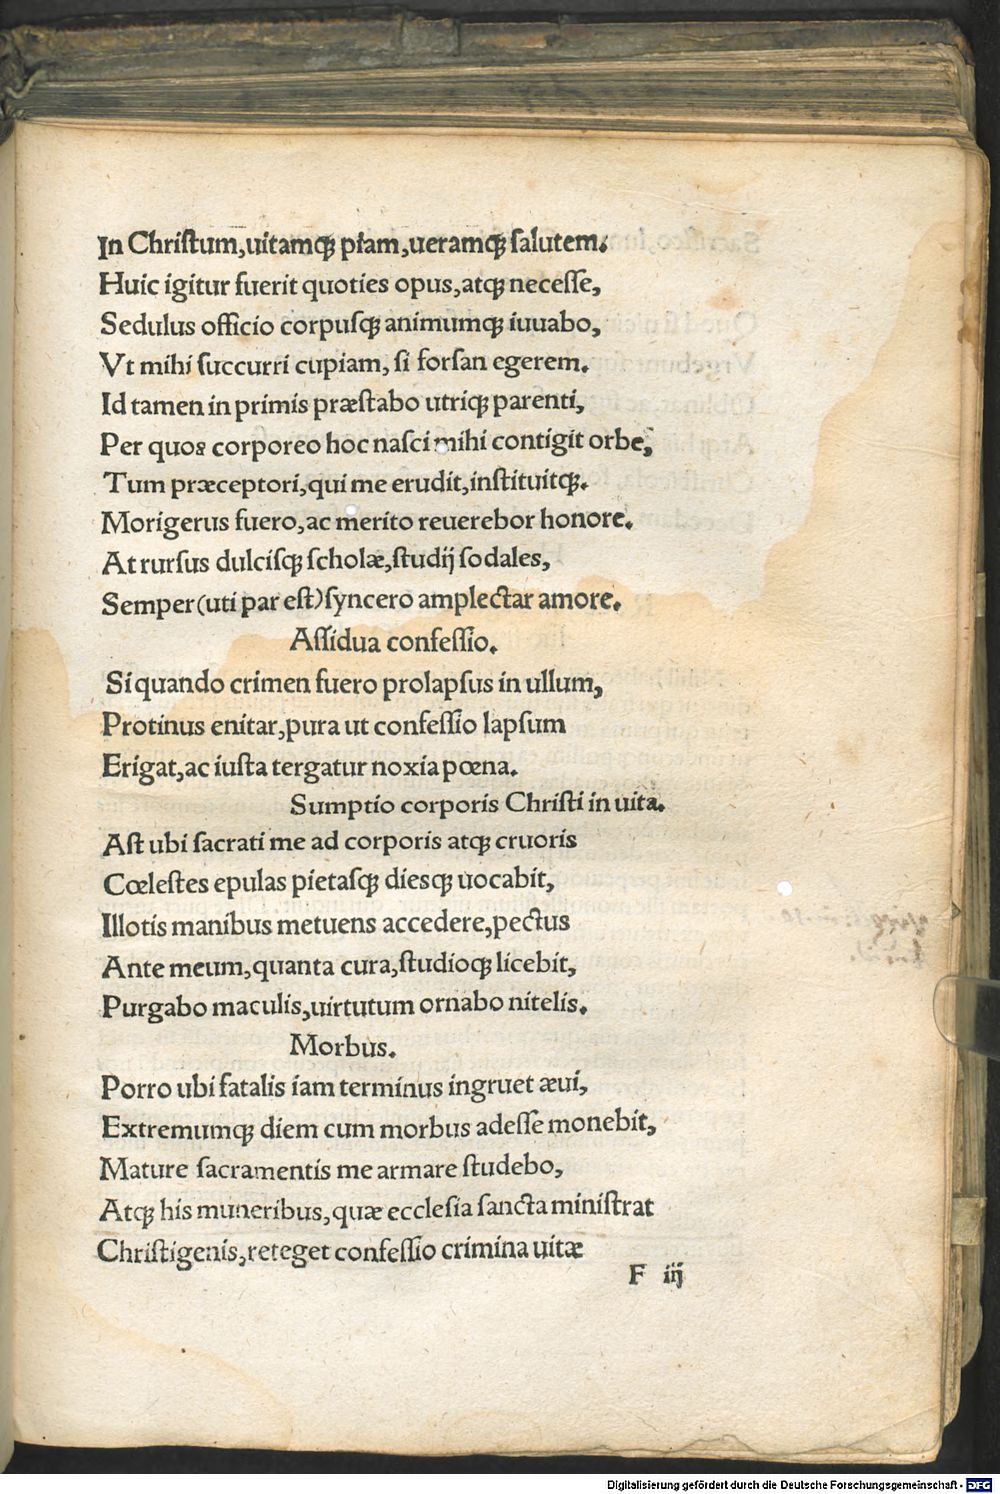 In Christum,uitamqꝫ piam,ueramqꝫ salutem.
Huic igitur fuerit quoties opus,atqꝫ necesse,
Sedulus officio corpusqꝫ animumqꝫ iuuabo,
Vt mihi succurri cupiam, si forsan egerem.
Id tamen in primis præstabo utriqꝫ parenti,
Per quos corporeo hoc nasci mihi contigit orbe,
Tum præceptori,qui me erudit,instituitqꝫ.
Morigerus fuero,ac merito reuerebor honore.
At rursus dulcisqꝫ scholæ,studij sodales,
Semper(uti par est)syncero amplectar amore.
Assidua confessio.
Si quando crimen fuero prolapsus in ullum,
Protinus enitar,pura ut confessio lapsum
Erigat,ac iusta tergatur noxia pœna.
Sumptio corporis Christi in uita.
Ast ubi sacrati me ad corporis atqꝫ cruoris
Cœlestes epulas pietasqꝫ diesqꝫ uocabit,
Illotis manibus metuens accedere,pectus
Ante meum,quanta cura,studioqꝫ licebit,
Purgabo maculis,uirtutum ornabo nitelis.
Morbus.
Porro ubi fatalis iam terminus ingruet æui,
Extremumqꝫ diem cum morbus adesse monebit,
Mature sacramentis me armare studebo,
Atqꝫ his muneribus,quæ ecclesia sancta ministrat
Christigenis,reteget confessio crimina uitæ
F iij
Digitalisierung gefördert durch die Deutsche Forschungsgemeinschaft - DFG